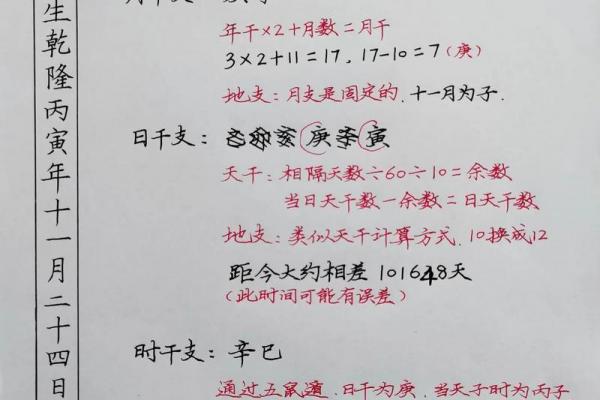 生乾隆丙寅年十一月二十四日
年干×2+月数=月干
3×2+11=17, 17-10=7(庚)
地支:月支是固定的.十一月为子.
日干支: 庚 寅
天干:相隔天数÷60÷10=余数
当日天干数-余数=日天干数
地支:类似天干计算方式,10换成12
距今大约相差101648天
(此时间可能有误差)
时干支:辛巳
通过五鼠遁.日干为庚.当天子时为丙子